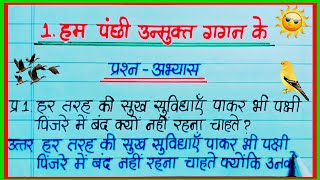 1. हम पंछी उन्मुक्त गगन के
प्रश्न-अभ्यास
प्र1 हर तरह की सुख सुविधाएँ पाकर भी पक्षी
पिंजरे में बंद क्यों नहीं रहना चाहते?
उत्तर हर तरह की सुख सुविधाएँ पाकर भी पक्षी
पिंजरे में बंद नहीं रहना चाहते क्योंकि उनक